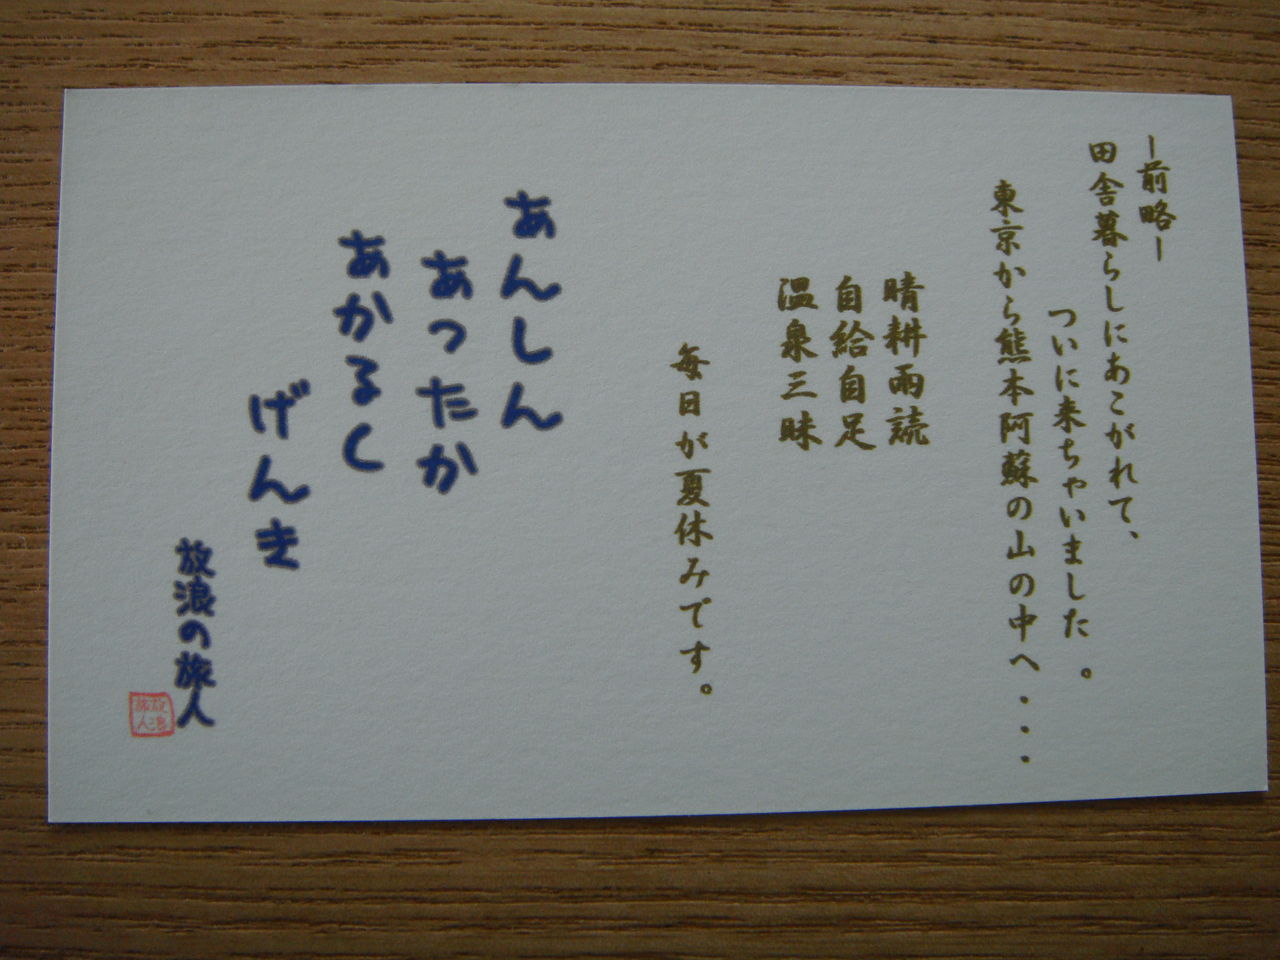 ー前略ー
田舎暮らしにあこがれて、
ついに来ちゃいました。
東京から熊本阿蘇の山の中へ・・・
晴耕雨読
自給自足
温泉三昧
毎日が夏休みです。
あんしん
あったか
あかるく
げんき
放浪の旅人
放浪
旅人